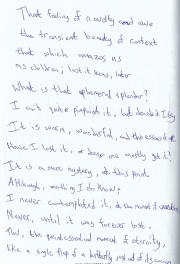 That feeling of novelty and awe
the transient beauty of context
that which amazes us
as children; lost it seems, later
What is that ephemeral splendor?
I can't quite pinpoint it, but describe it I try
It is warm, wonderful, and the essence of
Have I lost it, or deep me mostly got it?
It is a mere mystery, at this point
Although, nothing I do know;
I never contemplated it, in the moment of
Never, until it was forever lost.
This, the quintessential moment of eternity,
like a single flap of a butterfly instead of its